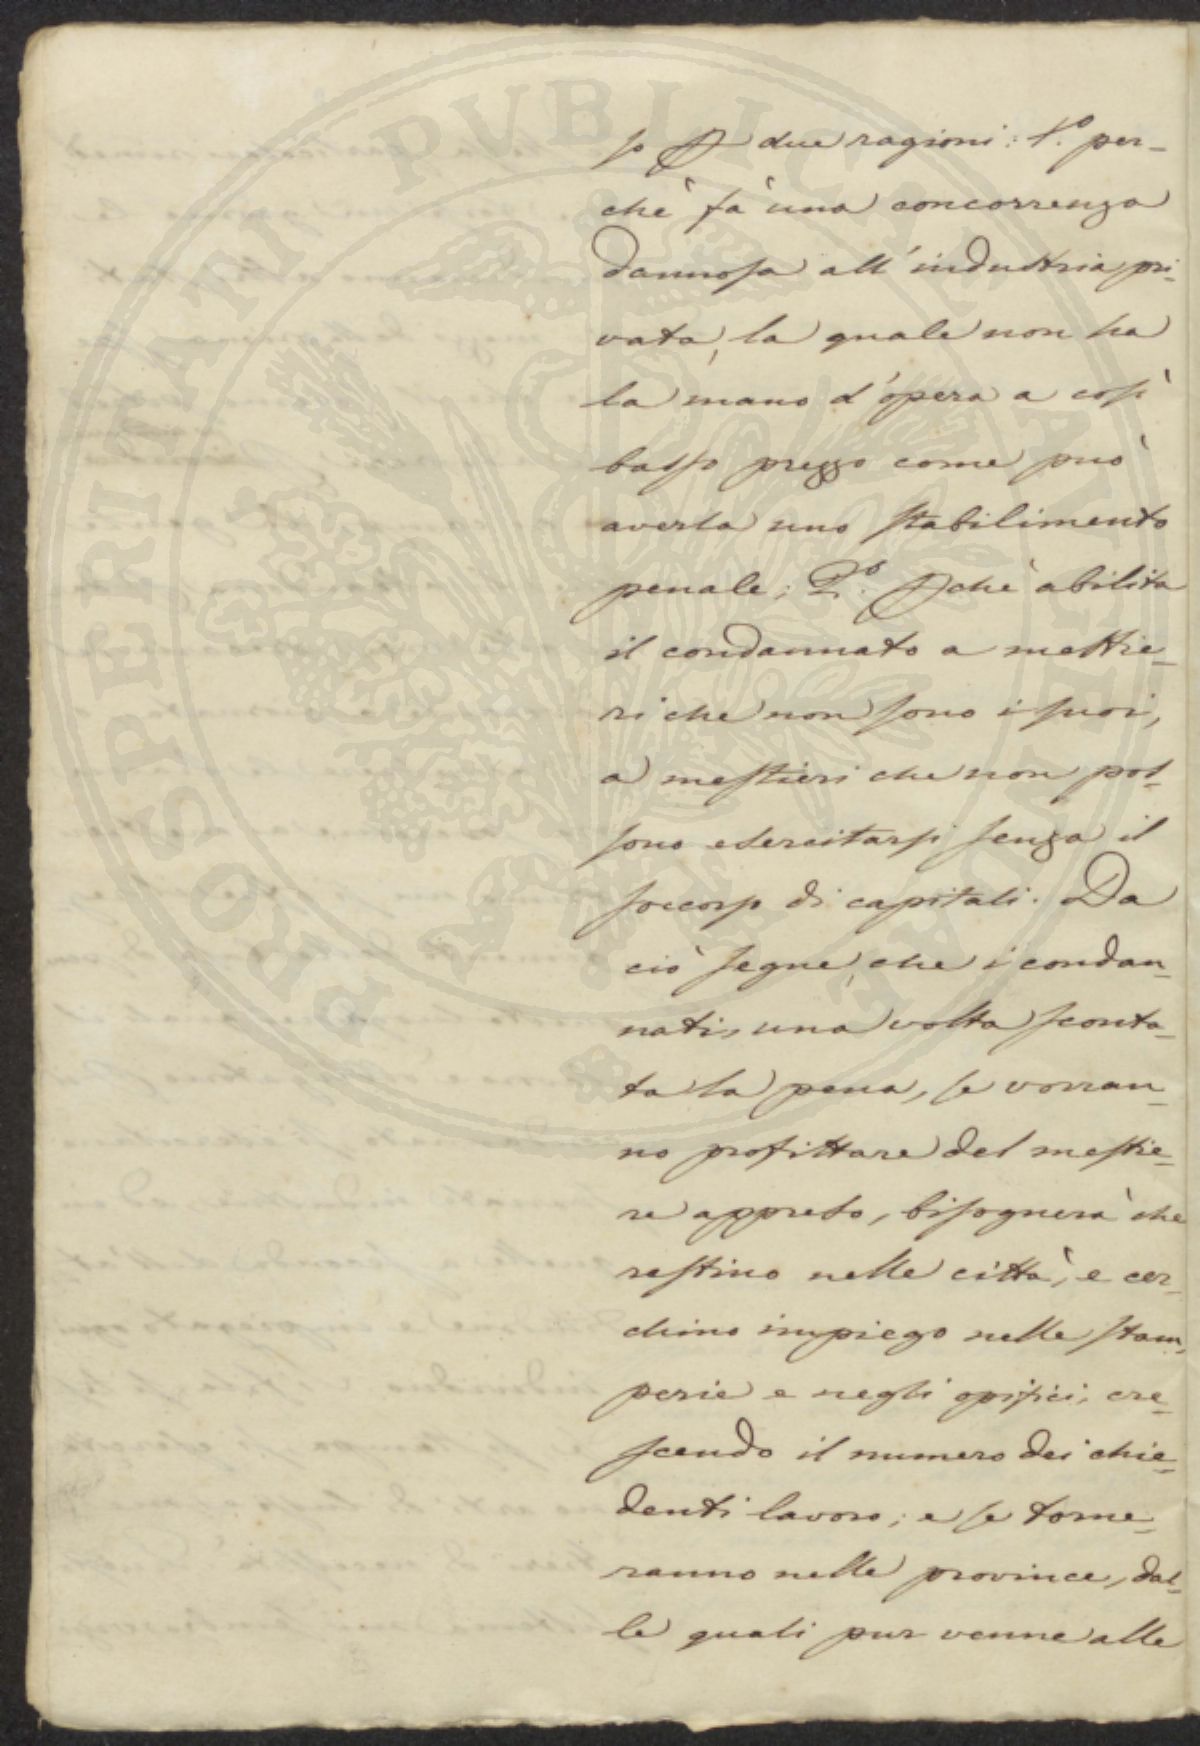 PROSPERITATI PVBLICAE AVGENDAE
so p due ragioni: 1.° per-
chè fà una concorrenza
dannosa all'industria pri-
vata, la quale non ha
la mano d'opera a così
basso prezzo come può
averla uno stabilimento
penale; 2.° pchè abilita
il condannato a mestie-
ri che non sono i suoi,
a mestieri che non pos-
sono esercitarsi senza il
soccorso di capitali. Da
ciò segue, che i condan-
nati, una volta sconta-
ta la pena, se vorran-
no profittare del mestie-
re appreso, bisognerà che
restino nelle città, e cer-
chino impiego nelle stam-
perie e negli opifici, cre-
scendo il numero dei chie-
denti lavoro; e se torne-
ranno nelle province, dal-
le quali pur venne alle